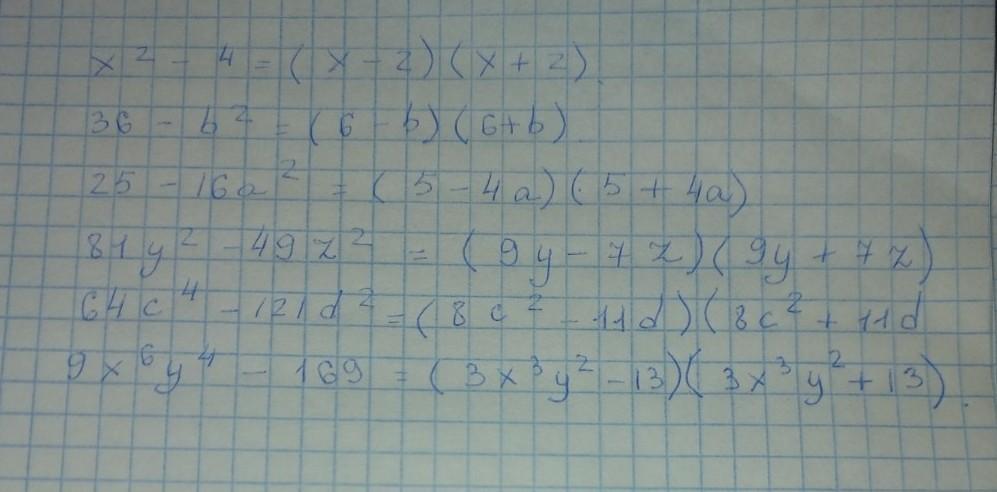 x² - 4 = (x - 2)(x + 2).
36 - b² = (6 - b)(6+b).
25 - 16a² = (5 - 4a)(5 + 4a)
81y² - 49z² = (9y - 7z)(9y + 7z)
64c⁴ - 121d² = (8c² - 11d)(8c² + 11d
9x⁶y⁴ - 169 = (3x³y² - 13)(3x³y² + 13).